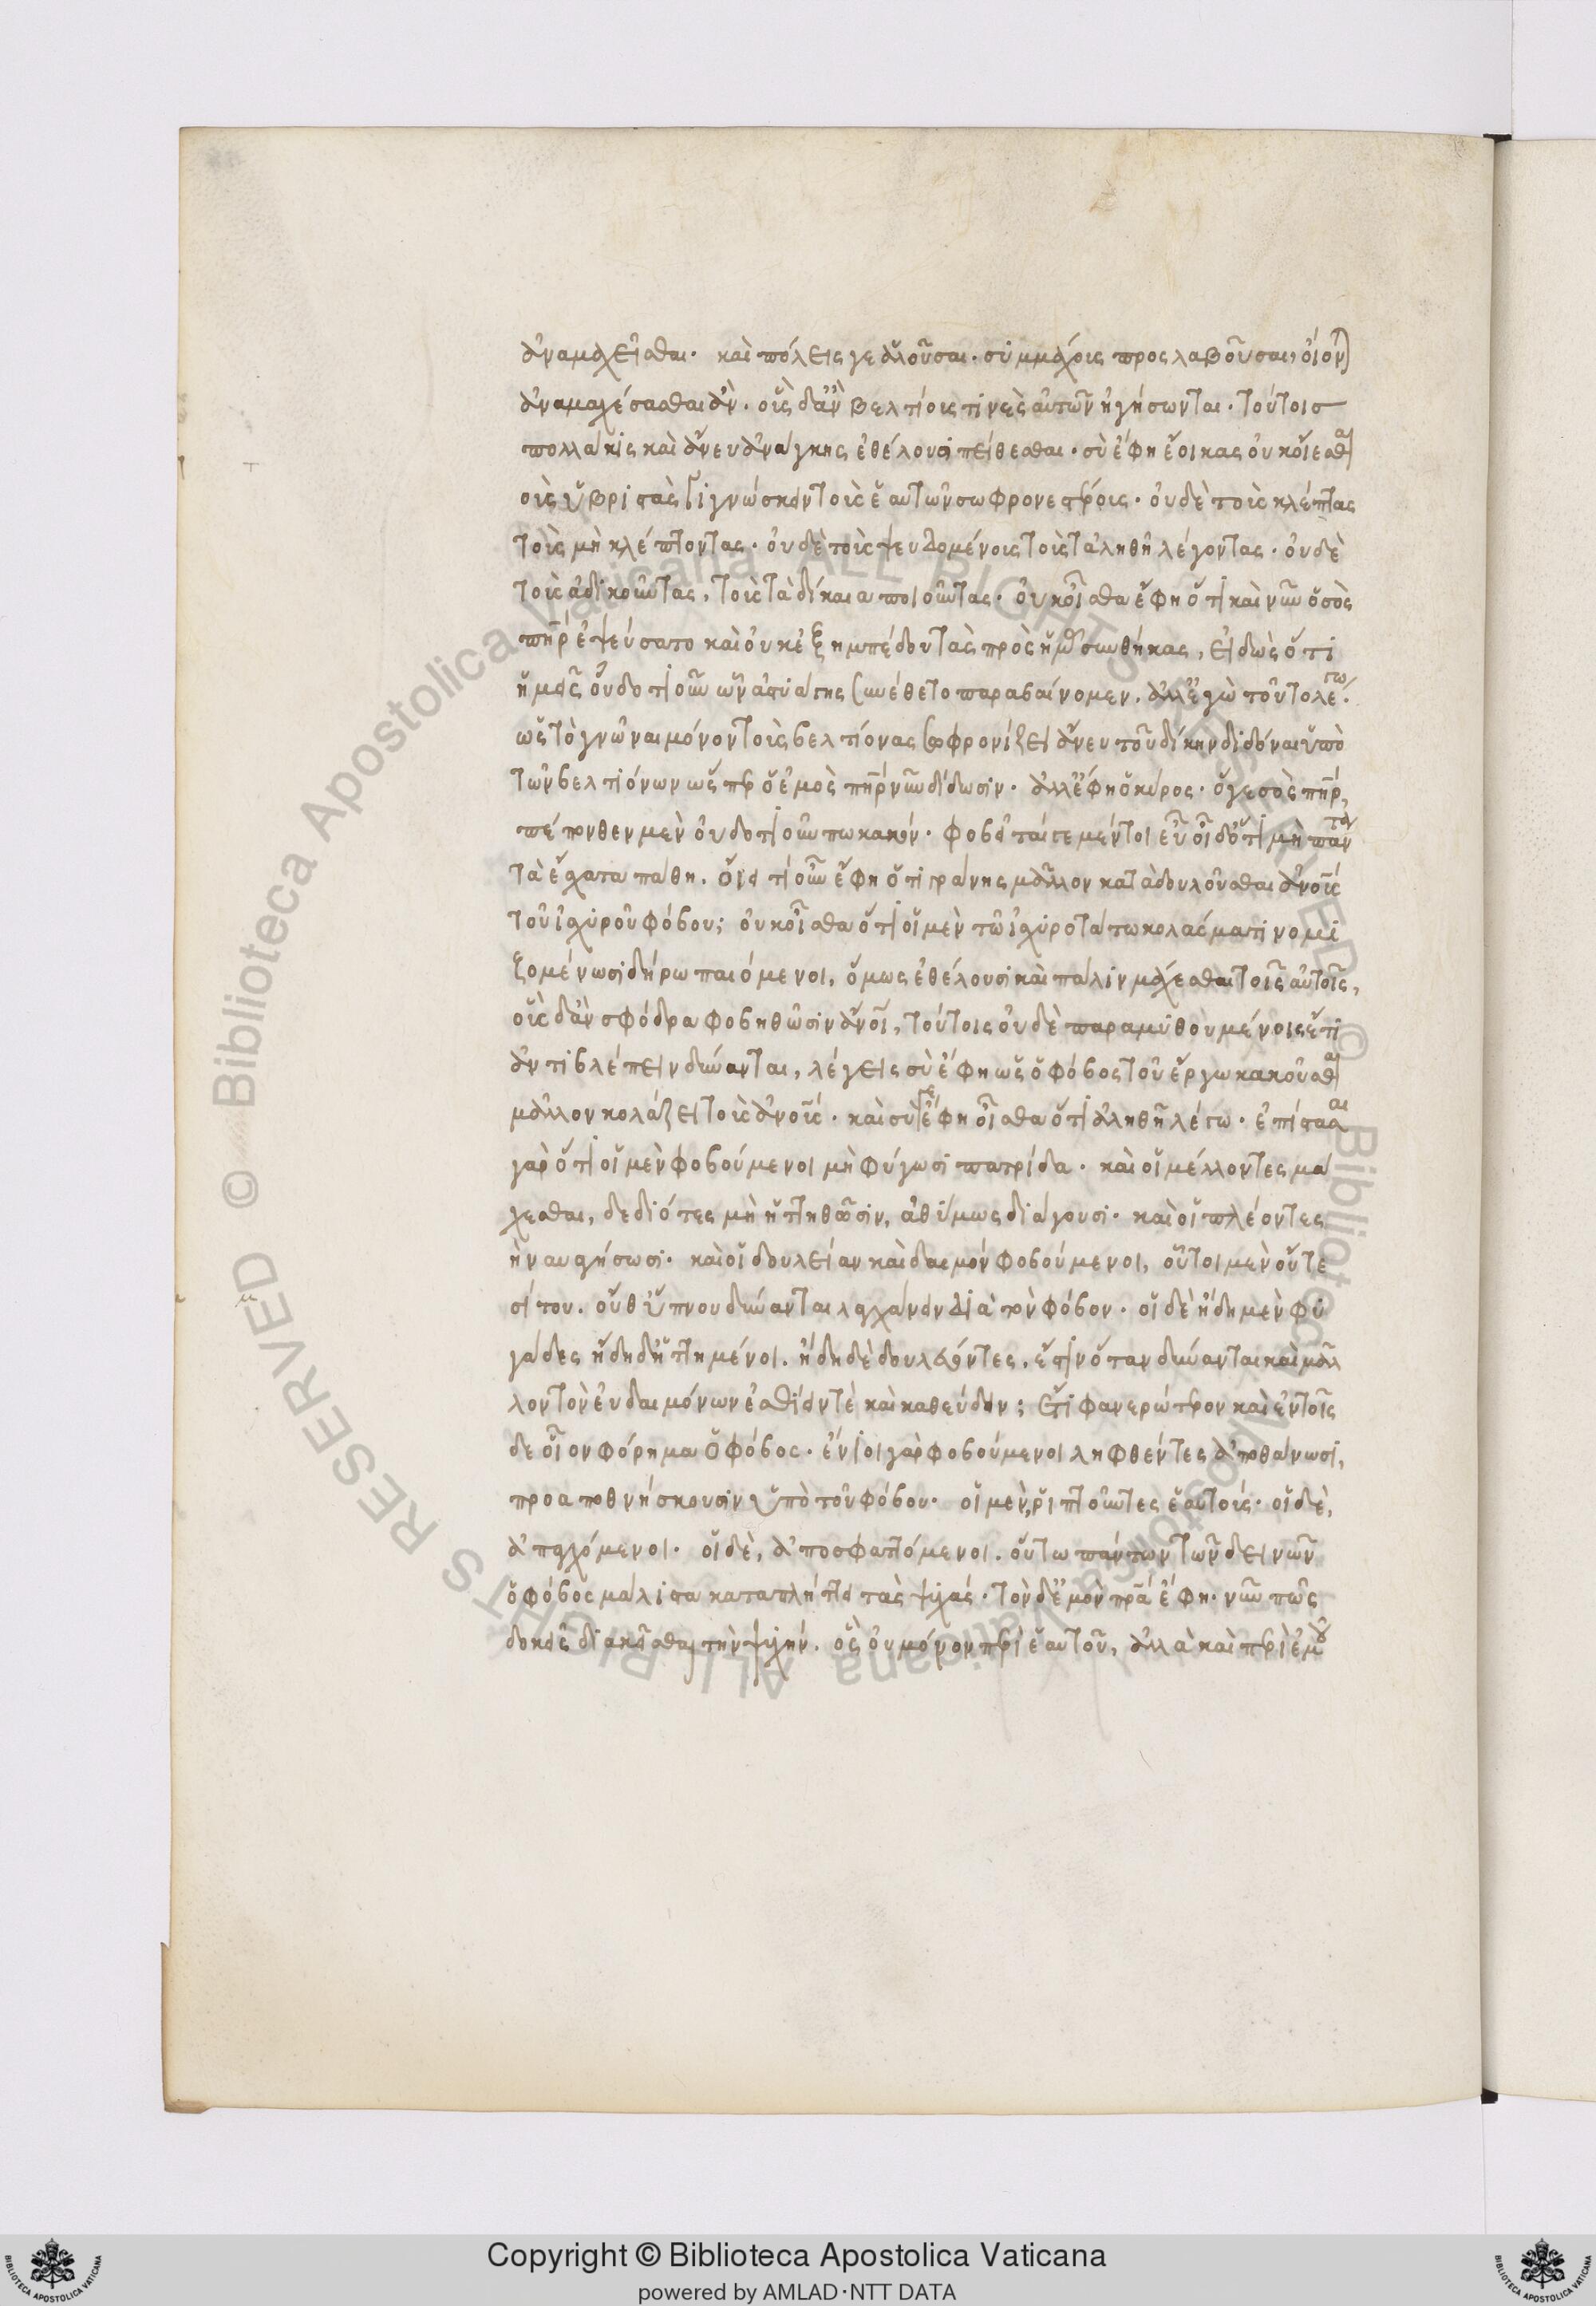 ἀναμαχεῖσθαι. καὶ πόλεις γε ἁλοῦσαι. συμμάχους προσλαβοῦσαι, οἴοντ
ἀναμαχέσασθαι ἄν. οὓς δ' ἂν βελτίους τινὲς αὑτῶν ἡγήσωνται. τούτοις
πολλάκις καὶ ἄνευ ἀνάγκης ἐθέλουσι πείθεσθαι. σὺ ἔφη ἔοικας οὐκ οἴεσθαι
τοὺς ὑβριστὰς γιγνώσκειν τοὺς ἑαυτῶν σωφρονεστέρους. οὐδὲ τοὺς κλέπτας
τοὺς μὴ κλέπτοντας. οὐδὲ τοὺς ψευδομένους τοὺς τἀληθῆ λέγοντας. οὐδὲ
τοὺς ἀδικοῦντας, τοὺς τὰ δίκαια ποιοῦντας. οὐκ οἶσθα ἔφη ὅτι καὶ νῦν ὁ σὸς
πὴρ ἐψεύσατο καὶ οὐκ ἐξημπέδου τὰς πρὸς ἡμᾶς συνθήκας, εἰδὼς ὅτι
ἡμεῖς οὐδοτιοῦν ὧν ἀστυάγης συνέθετο παραβαίνομεν. ἀλλ' ἐγὼ τοῦτο λέγω.
ὡς τὸ γνῶναι μόνον τοὺς βελτίονας σωφρονίζει ἄνευ τοῦ δίκην διδόναι ὑπὸ
τῶν βελτιόνων ὥσπερ ὁ ἐμὸς πὴρ νῦν δίδωσιν. ἀλλ' ἔφη ὁ κῦρος. ὅ γε σὸς πὴρ,
πέπονθεν μὲν οὐδοτιοῦν πω κακόν. φοβεῖταί γε μέντοι εὖ οἶδ' ὅτι μὴ πάντα
τὰ ἔσχατα πάθῃ. οἴει τι οὖν ἔφη ὁ τιγράνης μᾶλλον καταδουλοῦσθαι ἀνους
τοῦ ἰσχυροῦ φόβου; οὐκ οἶσθα ὅτι οἱ μὲν τῶ ἰσχυροτάτω κολάσματι νομι
ζομένω σιδήρω παιόμενοι, ὅμως ἐθέλουσι καὶ πάλιν μάχεσθαι τοῖς αὐτοῖς,
οὓς δ' ἂν σφόδρα φοβηθῶσιν ἀνοι, τούτοις οὐδὲ παραμυθουμένοις ἔτι
ἀντιβλέπειν δύνανται, λέγεις σὺ ἔφη ὡς ὁ φόβος τοῦ ἔργω κακοῦσθαι
μᾶλλον κολάζει τοὺς ἀνους. καὶ σύ γε ἔφη οἶσθα ὅτι ἀληθῆ λέγω. ἐπίστασαι
γὰρ ὅτι οἱ μὲν φοβούμενοι μὴ φύγωσι πατρίδα. καὶ οἱ μέλλοντες μά
χεσθαι, δεδιότες μὴ ἡττηθῶσιν, ἀθύμως διάγουσι. καὶ οἱ πλέοντες
ἢ ναυαγήσωσι. καὶ οἱ δουλείαν καὶ δεσμὸν φοβούμενοι, οὗτοι μὲν οὔτε
σίτου. οὔθ' ὕπνου δύνανται λαγχάνειν διὰ τὸν φόβον. οἱ δὲ ἤδη μὲν φυ
γάδες ἤδη δ' ἡττημένοι. ἤδη δὲ δουλεύοντες. ἔστιν ὅταν δύνανται καὶ μᾶλ
λον τὸν εὐδαιμόνων ἐσθίειν τὲ καὶ καθεύδειν; ἔτι φανερώτερον καὶ ἐν τοῖς
δε οἷον φόρημα ὁ φόβος. ἔνιοι γὰρ φοβούμενοι ληφθέντες ἀποθάνωσι,
προαποθνήσκουσιν ὑπὸ τοῦ φόβου. οἱ μὲν, ῥιπτοῦντες ἑαυτούς. οἱ δὲ,
ἀπαγχόμενοι. οἱ δὲ, ἀποσφαττόμενοι. οὕτω πάντων τῶν δεινῶν
ὁ φόβος μάλιστα καταπλήττει τὰς ψυχάς. τὸν δ' ἐμὸν πρα ἔφη. νῦν πῶς
δοκεῖς διακεῖσθαι τὴν ψυχήν. ὃς οὐ μόνον περὶ ἑαυτοῦ, ἀλλὰ καὶ περὶ ἐμοῦ
© Biblioteca Apostolica Vaticana ALL RIGHTS RESERVED © Biblioteca Apostolica Vaticana ALL RIGHTS RESERVED
Copyright © Biblioteca Apostolica Vaticana
powered by AMLAD·NTT DATA
BIBLIOTECA APOSTOLICA VATICANA
BIBLIOTECA APOSTOLICA VATICANA